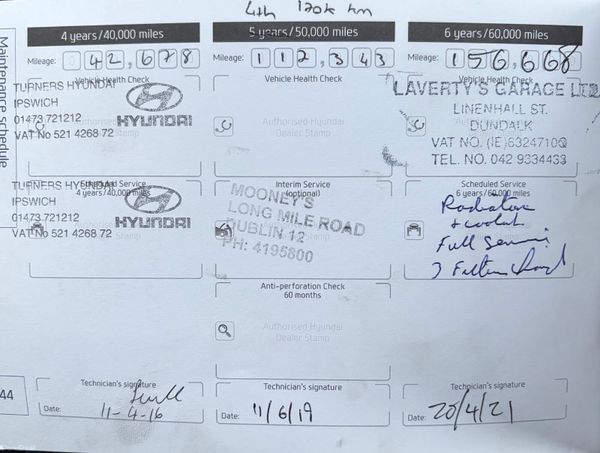 4th 120k km
4 years/40,000 miles
Mileage: 042,678
Vehicle Health Check
TURNERS HYUNDAI
IPSWICH
01473 721212
VAT No 521 4268 72
HYUNDAI
Authorised Hyundai
Dealer Stamp
Scheduled Service
4 years/40,000 miles
TURNERS HYUNDAI
IPSWICH
01473 721212
VAT No 521 4268 72
HYUNDAI
Technician's signature
Date: 11-4-16
5 years/50,000 miles
Mileage: 112,343
Vehicle Health Check
Authorised Hyundai
Dealer Stamp
Interim Service
(optional)
MOONEY'S
LONG MILE ROAD
DUBLIN 12
PH: 4195800
Anti-perforation Check
60 months
Authorised Hyundai
Dealer Stamp
Technician's signature
Date: 11/6/19
6 years/60,000 miles
Mileage: 156,668
Vehicle Health Check
LAVERTY'S GARAGE LTD
LINENHALL ST.
DUNDALK
VAT NO. (IE)6324710Q
TEL. NO. 042 9334433
Scheduled Service
6 years/60,000 miles
Radiator
+ coolant
Full Service
3 Filters Chargd
Technician's signature
Date: 20/4/21
Maintenance schedule
44